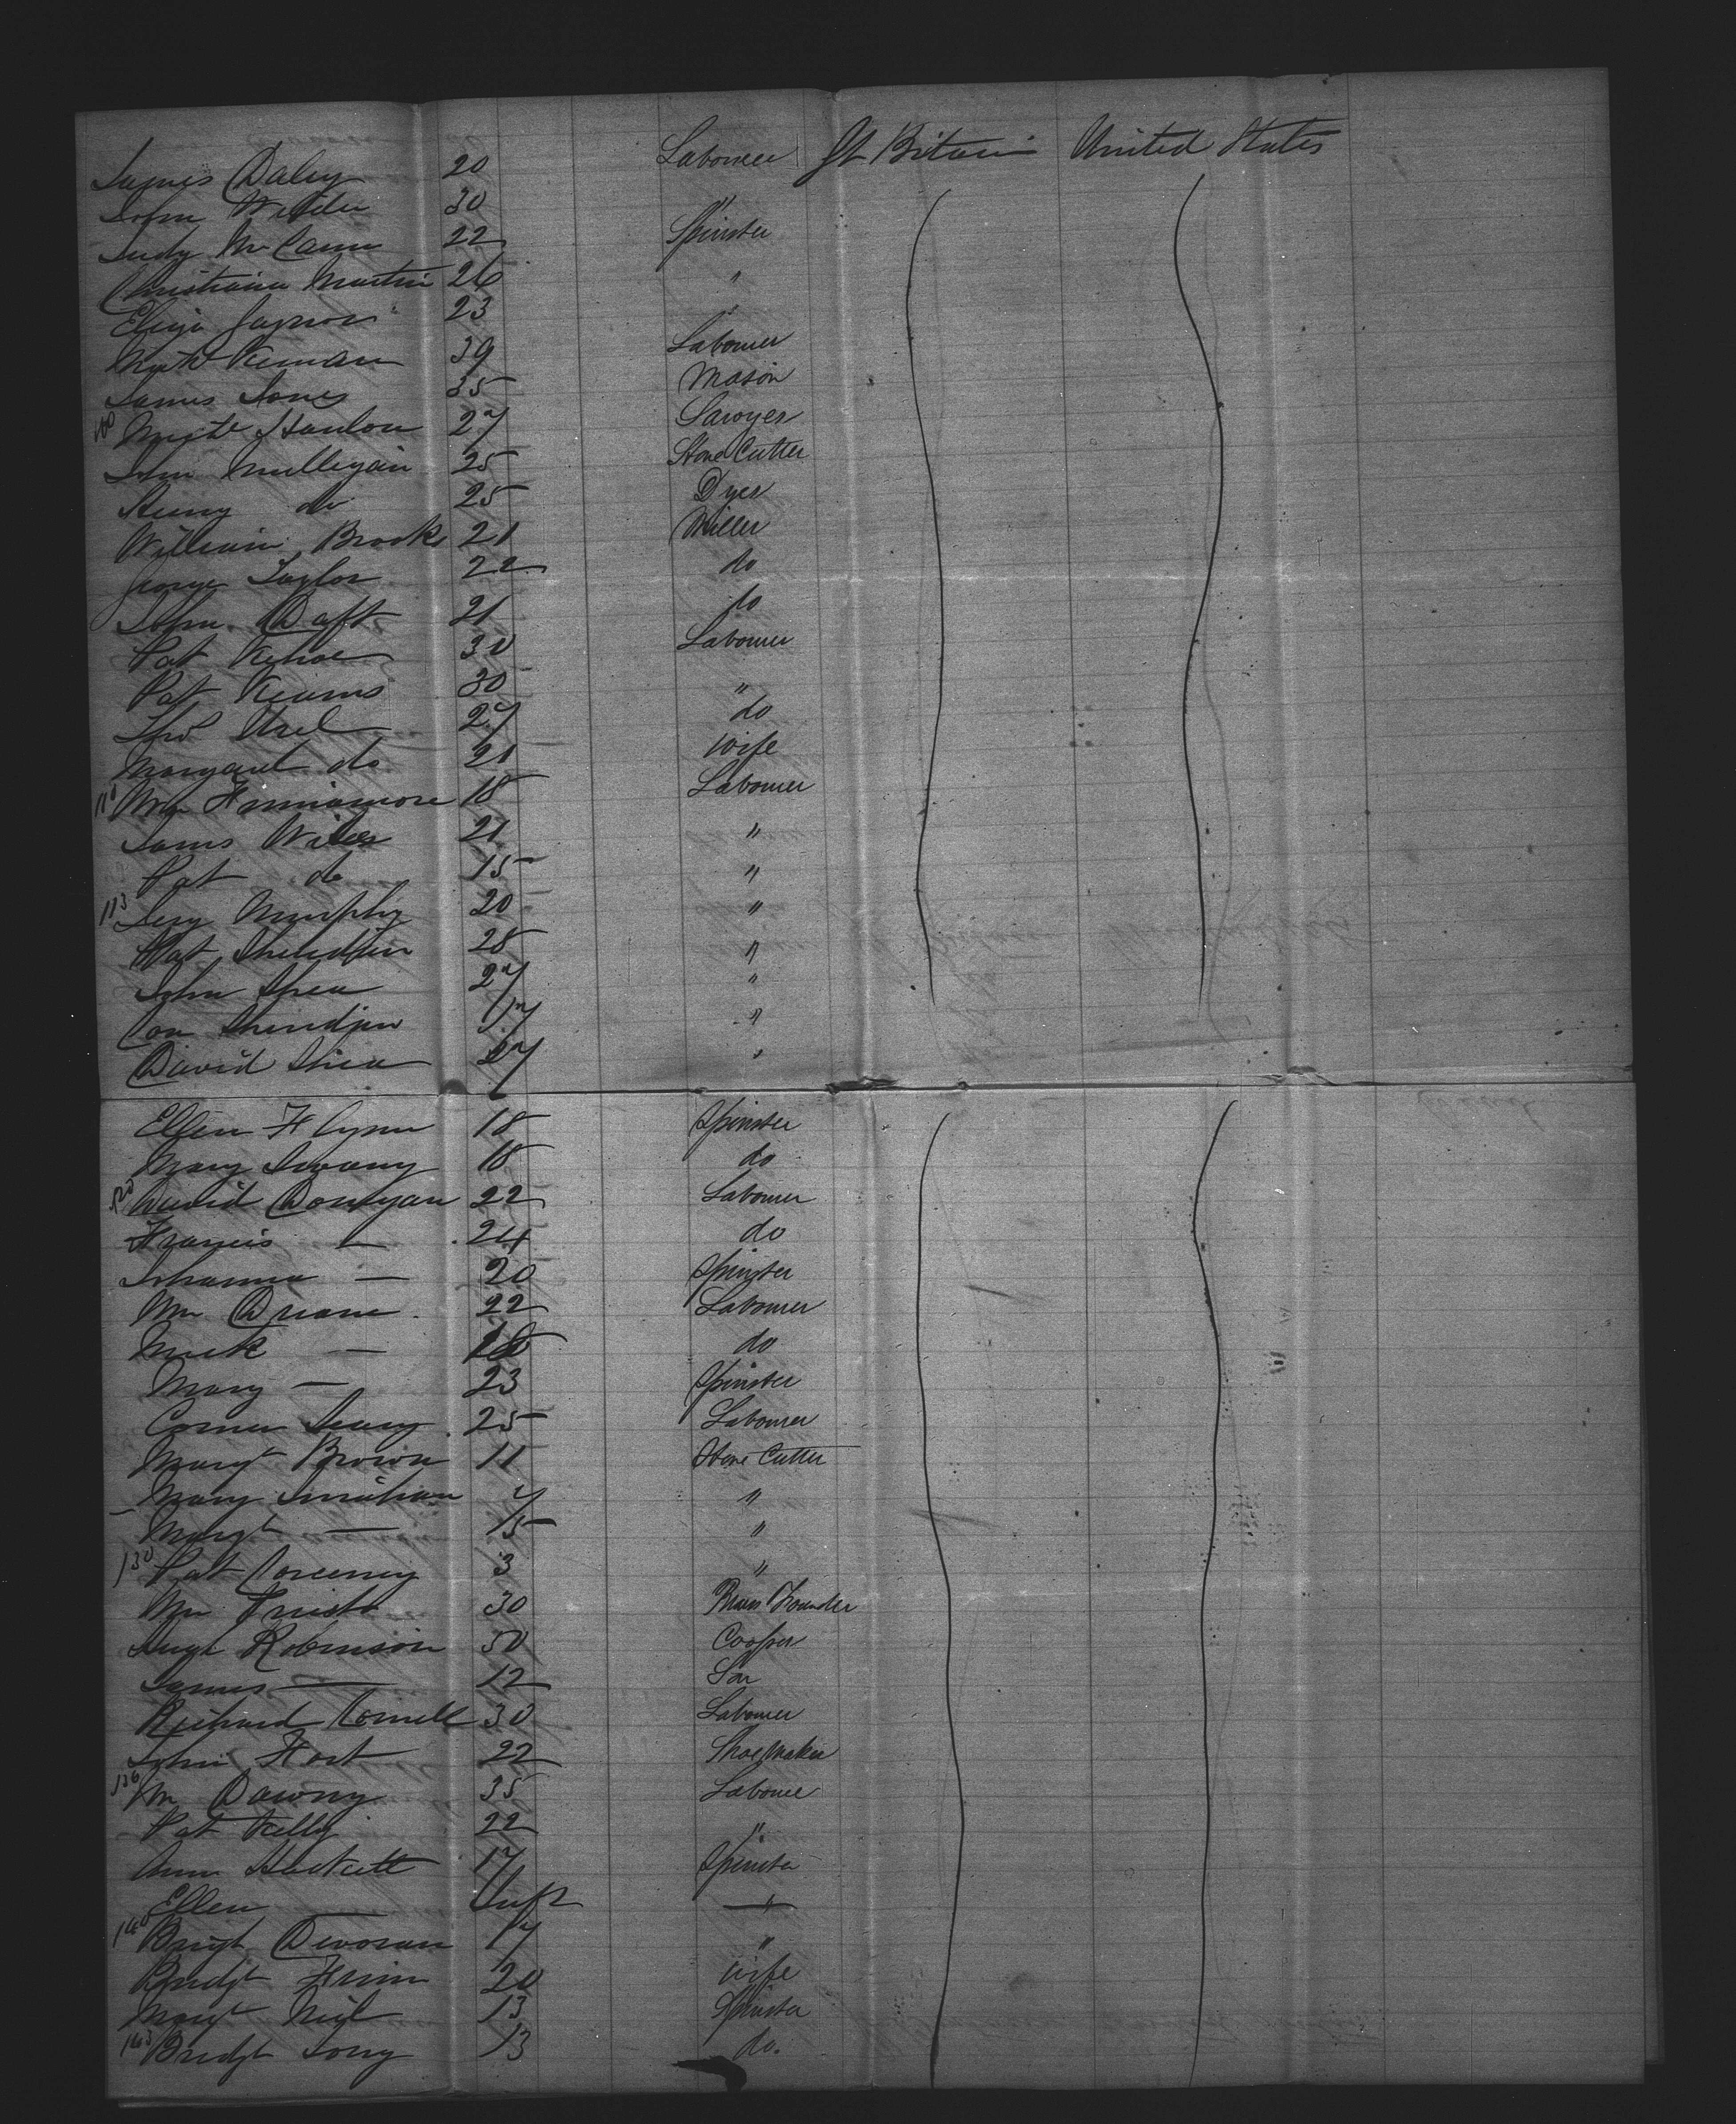 James Daley 20 Labourer Gt Britain United States
John Wilder 30 "
Judy McCann 22 Spinster
Christiana Martin 26 "
Eliza Jaynor 23 "
Mich Kernan 39 Labourer
James Jones 35 Mason
100 Mich Hanlon 27 Sawyer
John Mullegan 25 Stone Cutter
Henry do 25 Dyer
William Brooks 21 Miller
George Taylor 22 do
John Daft 21 do
Pat Kehoe 30 Labourer
Pat Kearns 30 "
Thos Usel 27 do
Margaret do 21 Wife
110 Wm Finnamore 18 Labourer
James Wiles 21 "
Pat do 15 "
113 Jery Murphy 20 "
Pat Sheridan 28 "
John Shea 27 "
Con 17 "
David Shea 27 "
Ellen Flynn 18 Spinster
Mary Swany 18 do
120 David Donegan 22 Labourer
Francis — 24 do
Johanna — 20 Spinster
Wm Druane 22 Labourer
Mick — 18 do
Mary — 23 Spinster
Corner Leary 25 Labourer
Margt Brown 11 Stone Cutter
Mary 7 "
Margt — 15 "
130 Pat 3 "
Wm 30 Brass Founder
Hugh Robinson 50 Cooper
James — 12 Son
Richard Cornell 30 Labourer
John Hart 22 Shoe Maker
136 Wm Dawny 35 Labourer
Pat Kelly 22 "
Ann Hackett 17 Spinster
Ellen — Inft "
140 Brigt 17 "
Bridgt 20 Wife
Margt 13 Spinster
143 Bridgt Long 13 do.